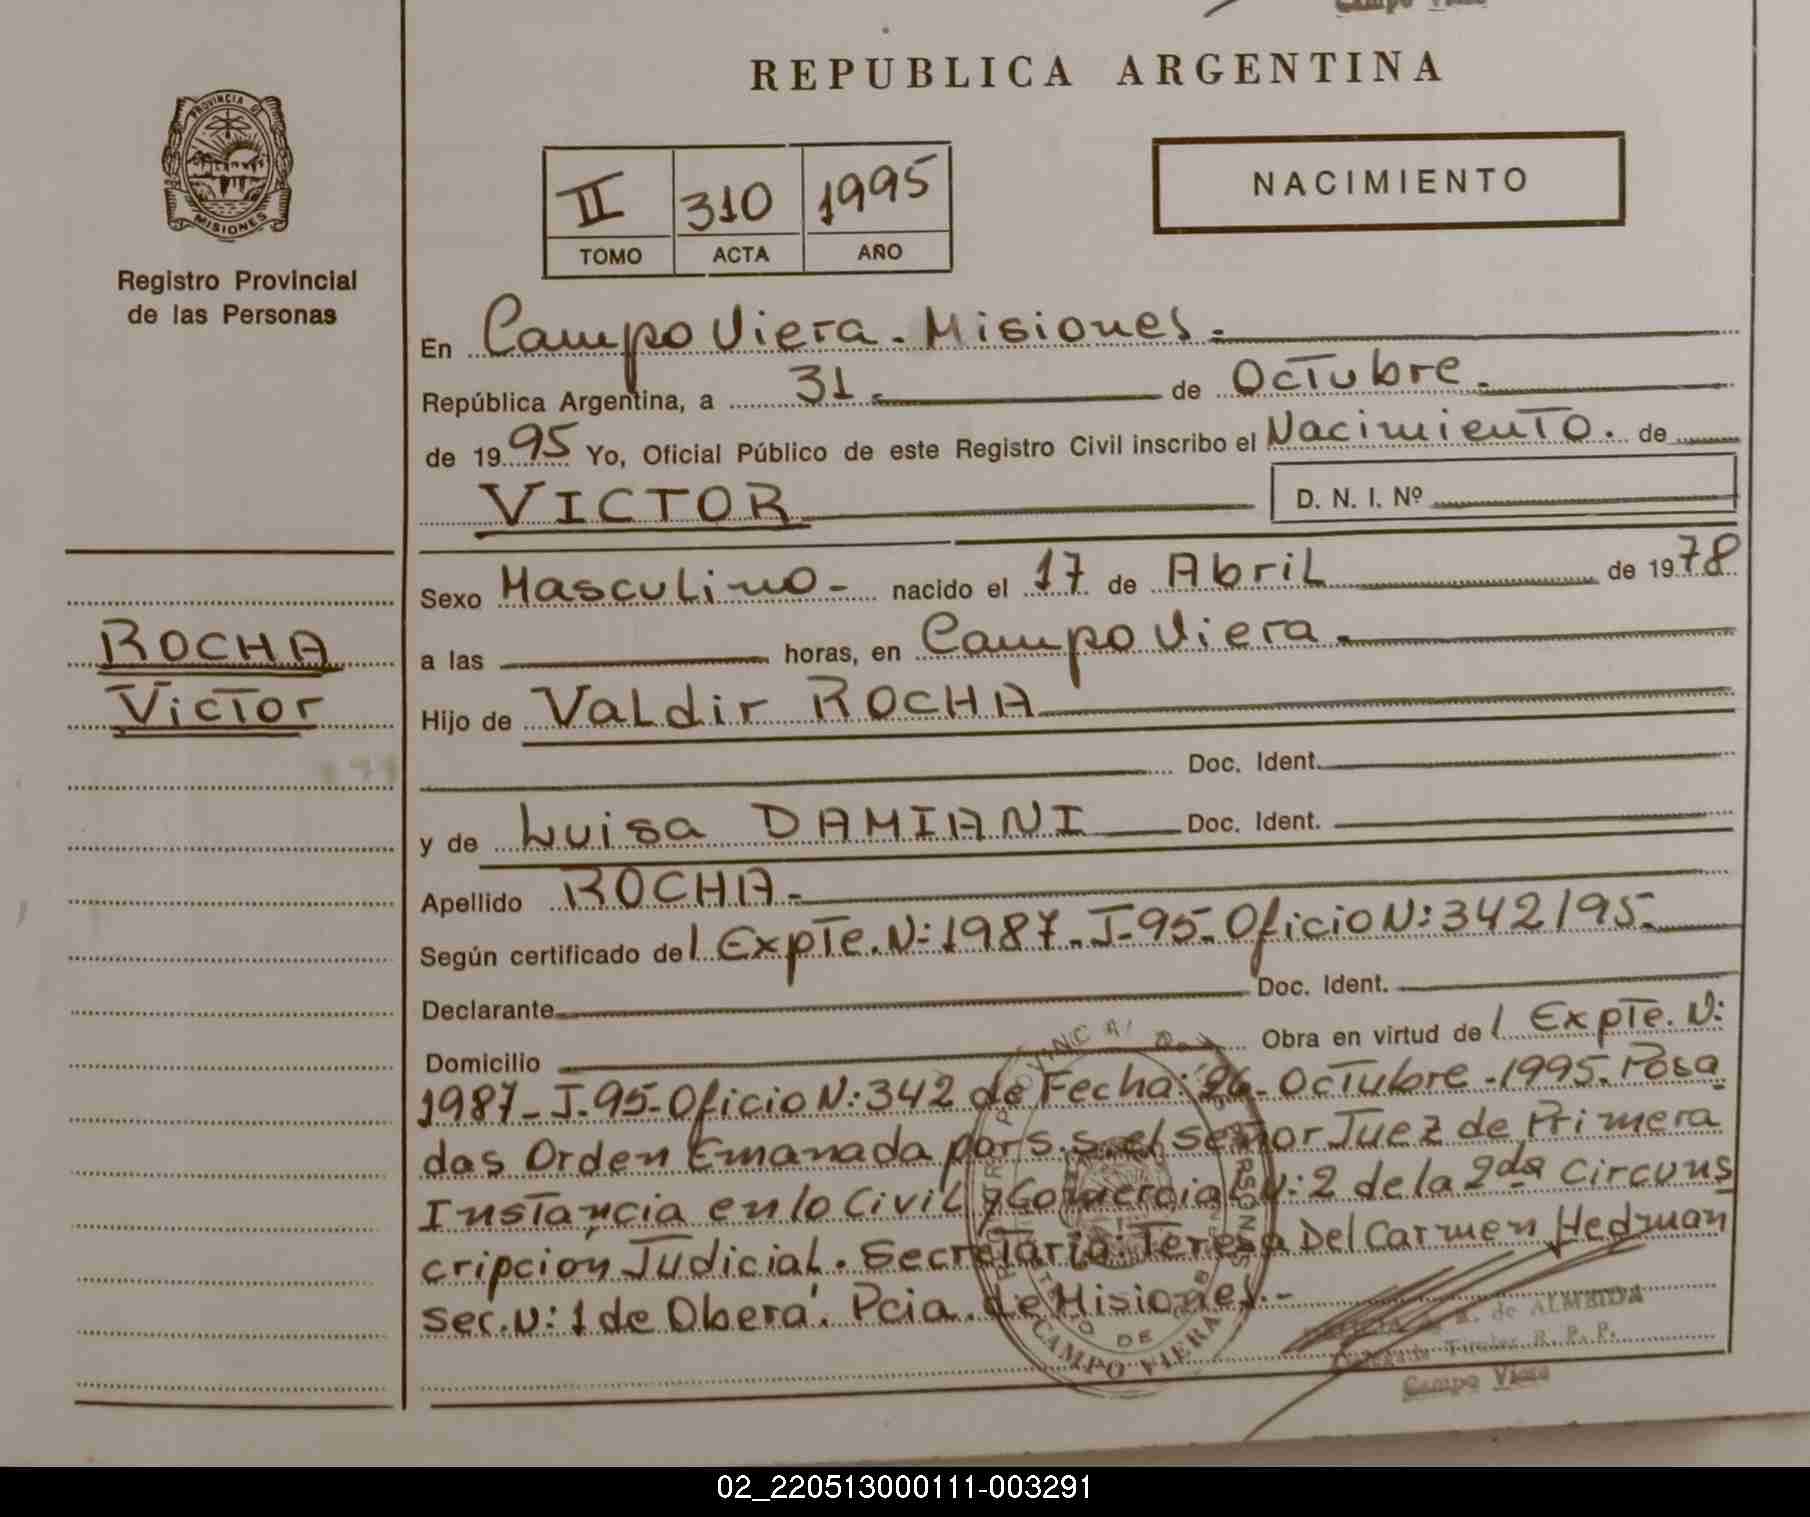 REPUBLICA ARGENTINA
PROVINCIA DE
MISIONES
Registro Provincial
de las Personas
II 310 1995
TOMO ACTA AÑO
NACIMIENTO
En Campo Viera - Misiones.
República Argentina, a 31. de Octubre.
de 1995 Yo, Oficial Público de este Registro Civil inscribo el Nacimiento. de
VICTOR D. N. I. Nº
Sexo Masculino - nacido el 17 de Abril de 1978
ROCHA
Victor
a las horas, en Campo Viera.
Hijo de Valdir ROCHA
Doc. Ident.
y de Luisa DAMIANI Doc. Ident.
Apellido ROCHA-
Según certificado del Expte. N: 1987-J-95-Oficio N: 342/95-
Declarante Doc. Ident.
Domicilio Obra en virtud del Expte. N:
1987-J-95-Oficio N: 342 de Fecha: 26-Octubre-1995. Posa
das Orden Emanada por s.s. el señor Juez de Primera
Instancia en lo Civil y Comercial N: 2 de la 2da Circuns
cripción Judicial. Secretaria: Teresa Del Carmen Hedman
Sec. N: 1 de Oberá. Pcia. de Misiones.-
CAMPO VIERA
de ALMEIDA
Titular R. P. P.
Campo Viera
02_220513000111-003291